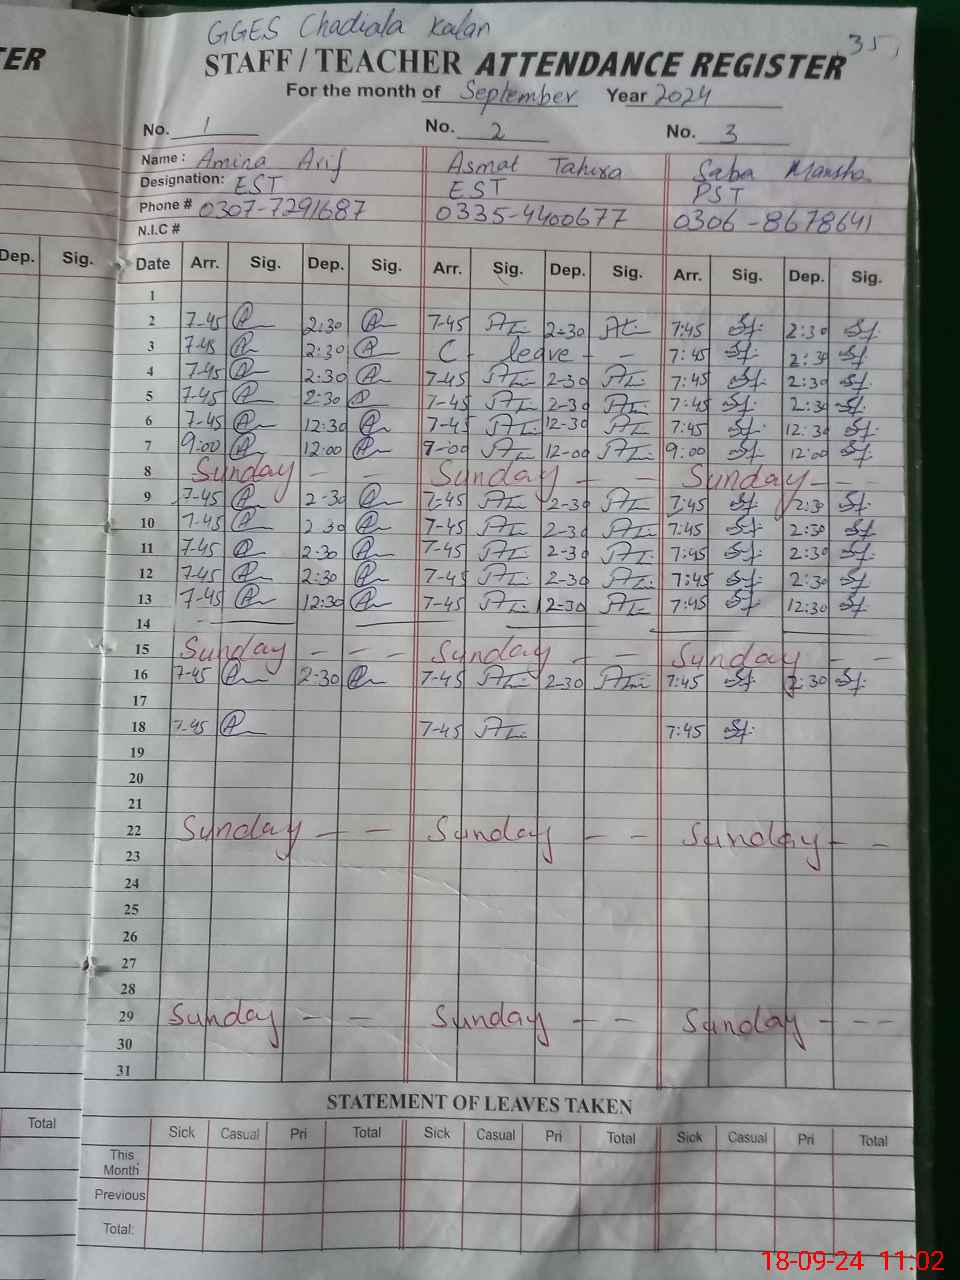 ER
GGES Chadiala Kalan
35
STAFF / TEACHER ATTENDANCE REGISTER
For the month of September Year 2024
No. 1 No. 2 No. 3
Name: Amina Arif Asmat Tahira Saba Mansha
Designation: EST EST PST
Phone # 0307-7291687 0335-4400677 0306-8678641
N.I.C #
Dep. Sig. Date Arr. Sig. Dep. Sig. Arr. Sig. Dep. Sig. Arr. Sig. Dep. Sig
1
2 7-45 2:30 7-45 2-30 7:45 2:30
3 7-45 2:30 C- leave - - 7:45 2:30
4 7-45 2:30 7-45 2-30 7:45 2:30
5 7-45 2:30 7-45 2-30 7:45 2:30
6 7-45 12:30 7-45 12-30 7:45 12:30
7 9:00 12:00 9-00 12-00 9:00 12:00
8 Sunday - - Sunday - - Sunday - -
9 7-45 2-30 7-45 2-30 7:45 2:30
10 7-45 2 30 7-45 2-30 7:45 2:30
11 7-45 2:30 7-45 2-30 7:45 2:30
12 7-45 2:30 7-45 2-30 7:45 2:30
13 7-45 12:30 7-45 12-30 7:45 12:30
14
15 Sunday - - - Sunday - - Sunday - -
16 7-45 2-30 7-45 2-30 7:45 2:30
17
18 7-45 7-45 7:45
19
20
21
22 Sunday - - Sunday - - Sunday - -
23
24
25
26
27
28
29 Sunday - - Sunday - - Sunday - --
30
31
STATEMENT OF LEAVES TAKEN
Total Sick Casual Pri Total Sick Casual Pri Total Sick Casual Pri Total
This Month
Previous
Total:
18-09-24 11:02